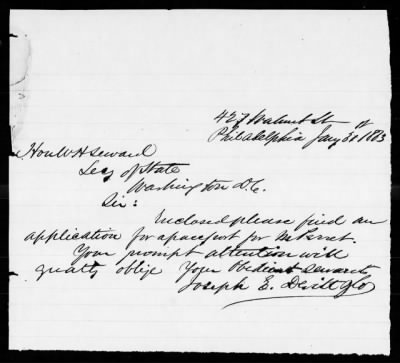 427 Walnut St
Philadelphia Jany 31st 1863
Hon W H Seward
Secy of State
Washington D.C.
Sir:
Inclosed please find an
application for a passport for Mr
Your prompt attention will
greatly oblige Your Obedient servants
Joseph E. Devitt & Co